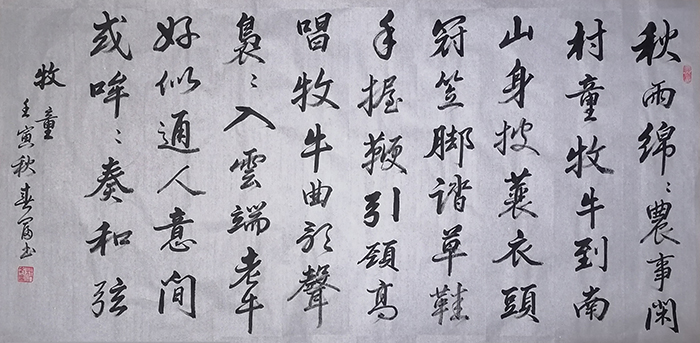 秋雨绵々農事闲
村童牧牛到南
山身披蓑衣頭
冠笠脚踏草鞋
手握鞭引颈高
唱牧牛曲歌聲
裊々入雲端老牛
好似通人意间
或哞々奏和弦
牧童
壬寅秋春富书